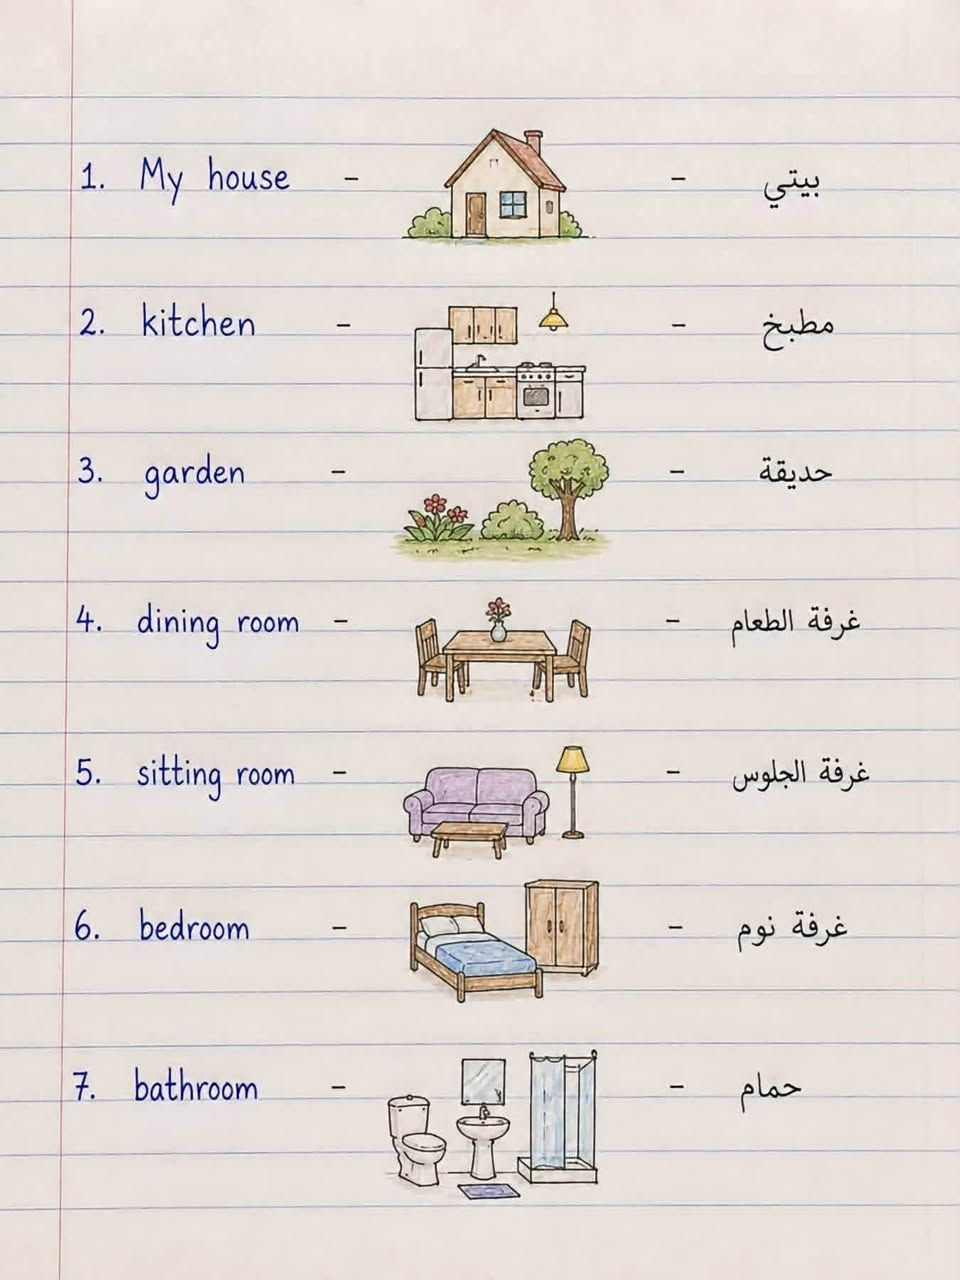 1. My house - - بيتي
2. kitchen - - مطبخ
3. garden - - حديقة
4. dining room - - غرفة الطعام
5. sitting room - - غرفة الجلوس
6. bedroom - - غرفة نوم
7. bathroom - - حمام